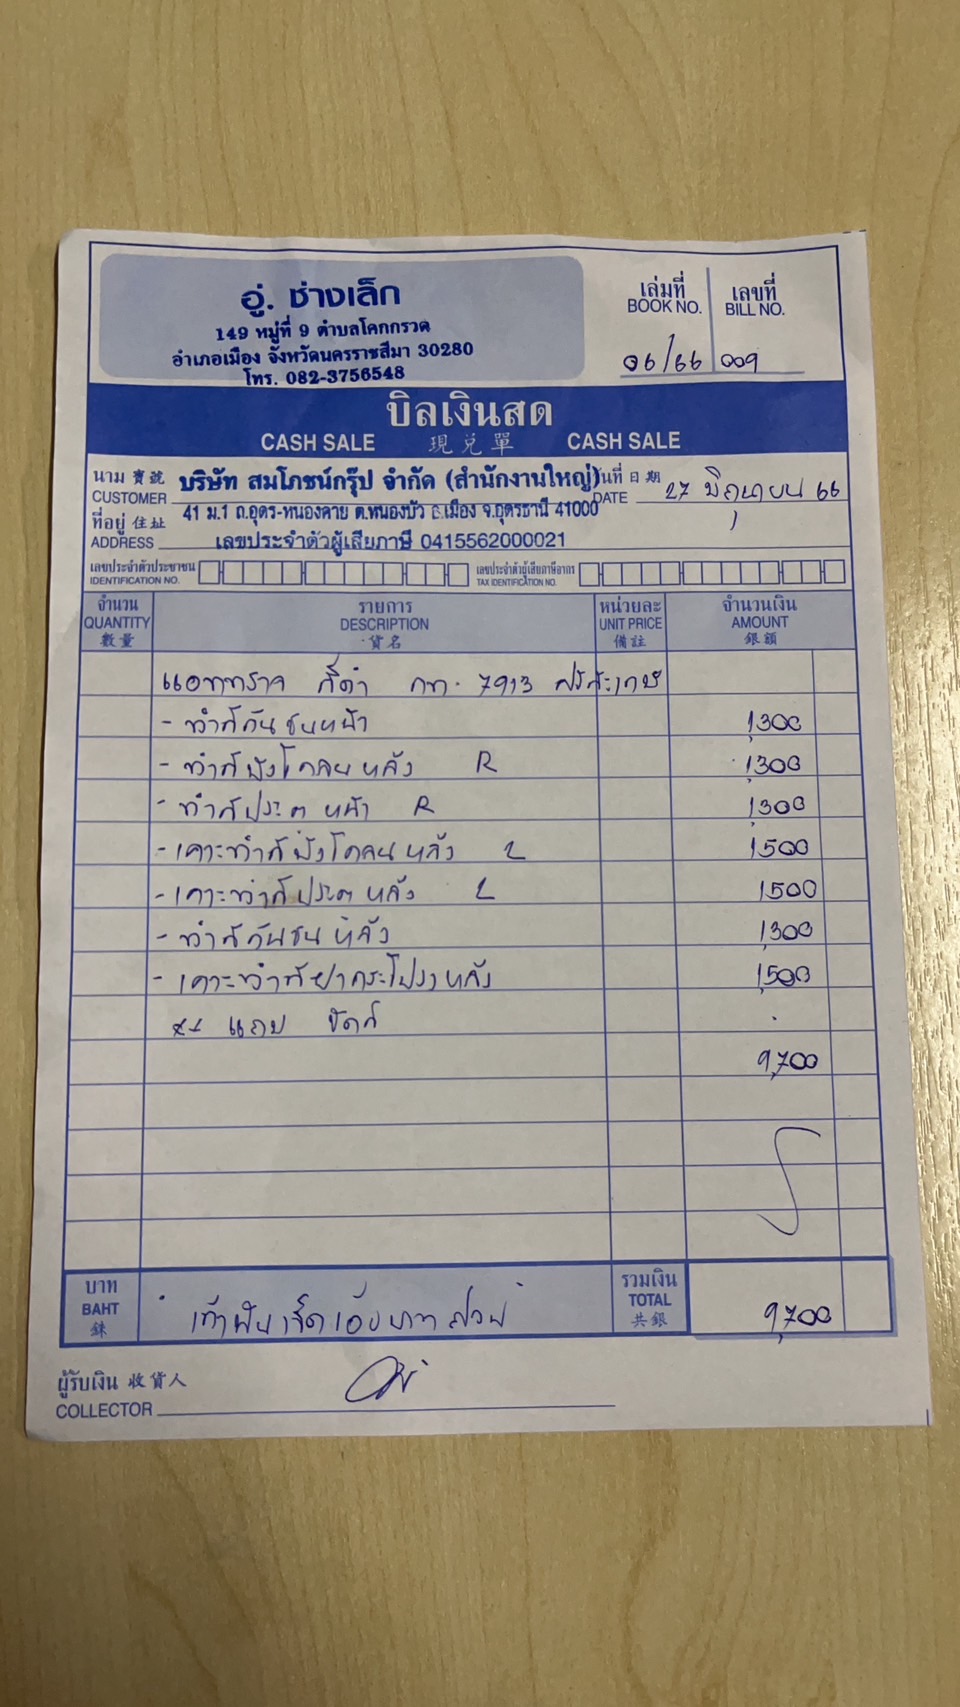 อู่. ช่างเล็ก
149 หมู่ที่ 9 ตำบลโคกกรวด
อำเภอเมือง จังหวัดนครราชสีมา 30280
โทร. 082-3756548
เล่มที่ เลขที่
BOOK NO. BILL NO.
06/66 009
บิลเงินสด
CASH SALE 現兑單 CASH SALE
นาม 寶號 บริษัท สมโภชน์กรุ๊ป จำกัด (สำนักงานใหญ่) วันที่ 日期
CUSTOMER DATE 27 มิถุนายน 66
ที่อยู่ 住址 41 ม.1 ถ.อุดร-หนองคาย ต.หนองบัว อ.เมือง จ.อุดรธานี 41000
ADDRESS เลขประจำตัวผู้เสียภาษี 0415562000021
เลขประจำตัวประชาชน เลขประจำตัวผู้เสียภาษีอากร
IDENTIFICATION NO. TAX IDENTIFICATION NO.
จำนวน รายการ หน่วยละ จำนวนเงิน
QUANTITY DESCRIPTION UNIT PRICE AMOUNT
數量 貨名 備註 銀額
แอททราจ สีดำ กท. 7913 ศรีสะเกษ
- ทำสีกันชนหน้า 1,300
- ทำสีบังโคลนหลัง R 1,300
- ทำสีประตูหน้า R 1,300
- เคาะทำสีบังโคลนหลัง L 1500
- เคาะทำสีประตูหลัง L 1500
- ทำสีกันชนหลัง 1,300
- เคาะทำสีฝากระโปรงหลัง 1,500
** แถม ขัดสี
9,700
บาท รวมเงิน
BAHT TOTAL
銖 共銀
เก้าพันเจ็ดร้อยบาทถ้วน 9,700
ผู้รับเงิน 收貨人
COLLECTOR